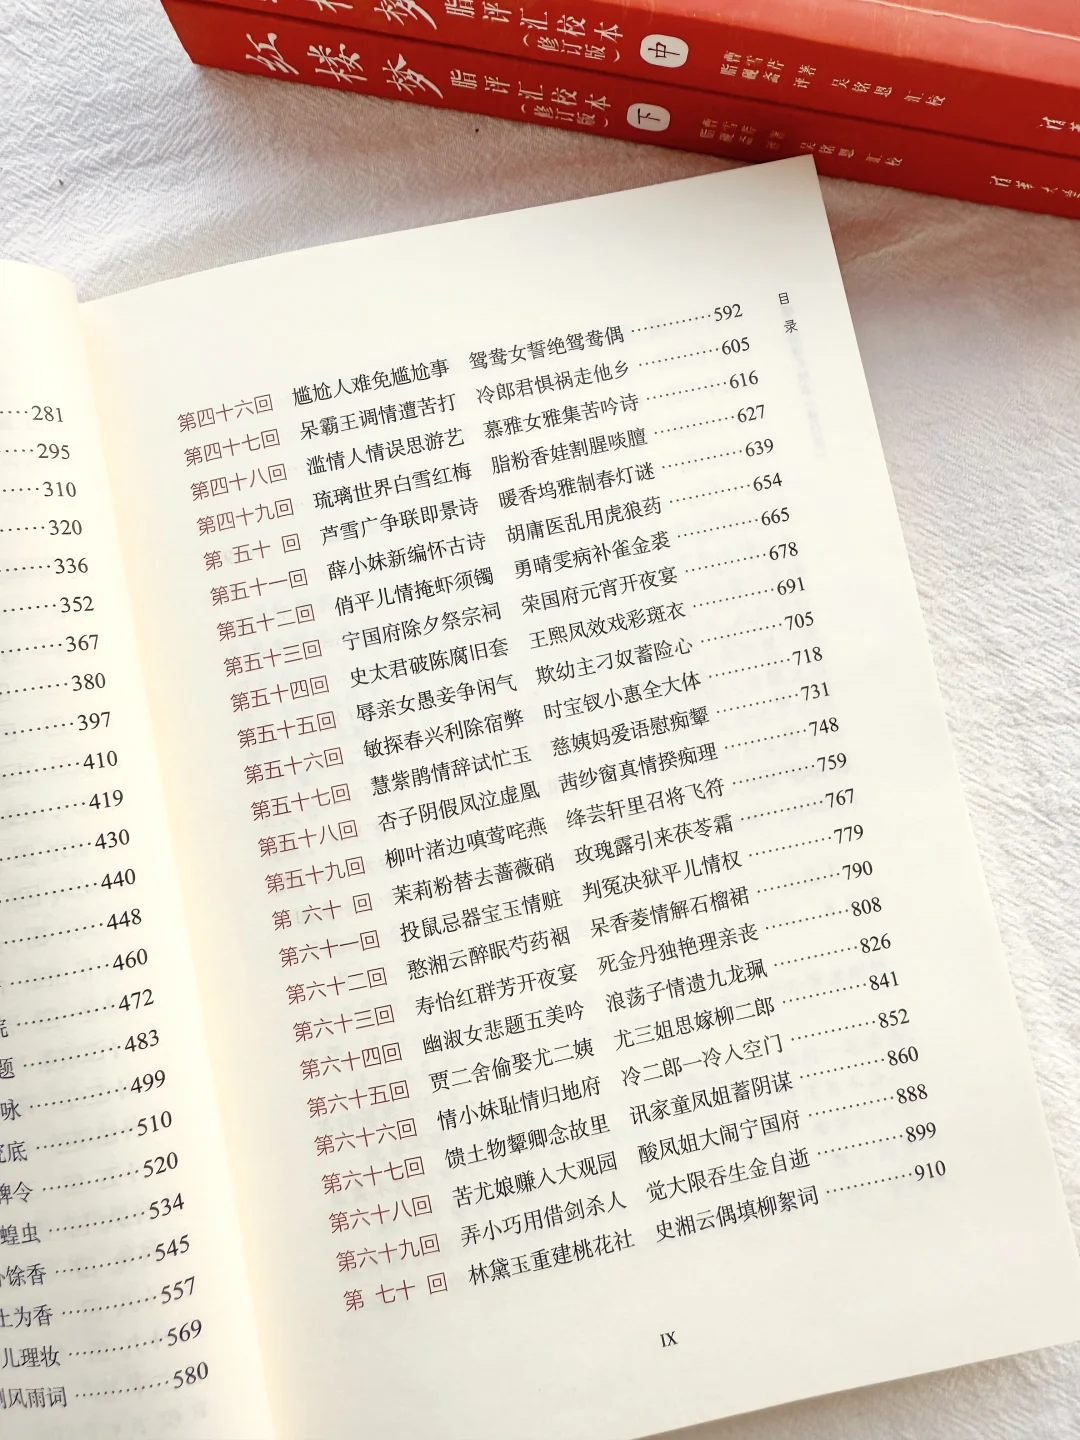 红楼梦 脂评汇校本 (修订版) 中 曹雪芹 著 脂砚斋 评 吴铭恩 汇校 清
红楼梦 脂评汇校本 (修订版) 下 曹雪芹 著 脂砚斋 评 吴铭恩 汇校 清华大学
目录
第四十六回 尴尬人难免尴尬事 鸳鸯女誓绝鸳鸯偶 ············592
第四十七回 呆霸王调情遭苦打 冷郎君惧祸走他乡 ············605
第四十八回 滥情人情误思游艺 慕雅女雅集苦吟诗 ············616
第四十九回 琉璃世界白雪红梅 脂粉香娃割腥啖膻 ············627
第五十回 芦雪广争联即景诗 暖香坞雅制春灯谜 ············639
第五十一回 薛小妹新编怀古诗 胡庸医乱用虎狼药 ············654
第五十二回 俏平儿情掩虾须镯 勇晴雯病补雀金裘 ············665
第五十三回 宁国府除夕祭宗祠 荣国府元宵开夜宴 ············678
第五十四回 史太君破陈腐旧套 王熙凤效戏彩斑衣 ············691
第五十五回 辱亲女愚妾争闲气 欺幼主刁奴蓄险心 ············705
第五十六回 敏探春兴利除宿弊 时宝钗小惠全大体 ············718
第五十七回 慧紫鹃情辞试忙玉 慈姨妈爱语慰痴颦 ············731
第五十八回 杏子阴假凤泣虚凰 茜纱窗真情揆痴理 ············748
第五十九回 柳叶渚边嗔莺咤燕 绛芸轩里召将飞符 ············759
第六十回 茉莉粉替去蔷薇硝 玫瑰露引来茯苓霜 ············767
第六十一回 投鼠忌器宝玉情赃 判冤决狱平儿情权 ············779
第六十二回 憨湘云醉眠芍药裀 呆香菱情解石榴裙 ············790
第六十三回 寿怡红群芳开夜宴 死金丹独艳理亲丧 ············808
第六十四回 幽淑女悲题五美吟 浪荡子情遗九龙珮 ············826
第六十五回 贾二舍偷娶尤二姨 尤三姐思嫁柳二郎 ············841
第六十六回 情小妹耻情归地府 冷二郎一冷入空门 ············852
第六十七回 馈土物颦卿念故里 讯家童凤姐蓄阴谋 ············860
第六十八回 苦尤娘赚入大观园 酸凤姐大闹宁国府 ············888
第六十九回 弄小巧用借剑杀人 觉大限吞生金自逝 ············899
第七十回 林黛玉重建桃花社 史湘云偶填柳絮词 ············910
IX
···281
···295
····310
·····320
·····336
······352
······367
·······380
·······397
········410
········419
·········430
·········440
·········448
··········460
··········472
题 ··········483
咏 ··········499
究底 ··········510
牌令 ··········520
蝗虫 ··········534
馀香 ··········545
土为香 ··········557
儿理妆 ··········569
风雨词 ··········580